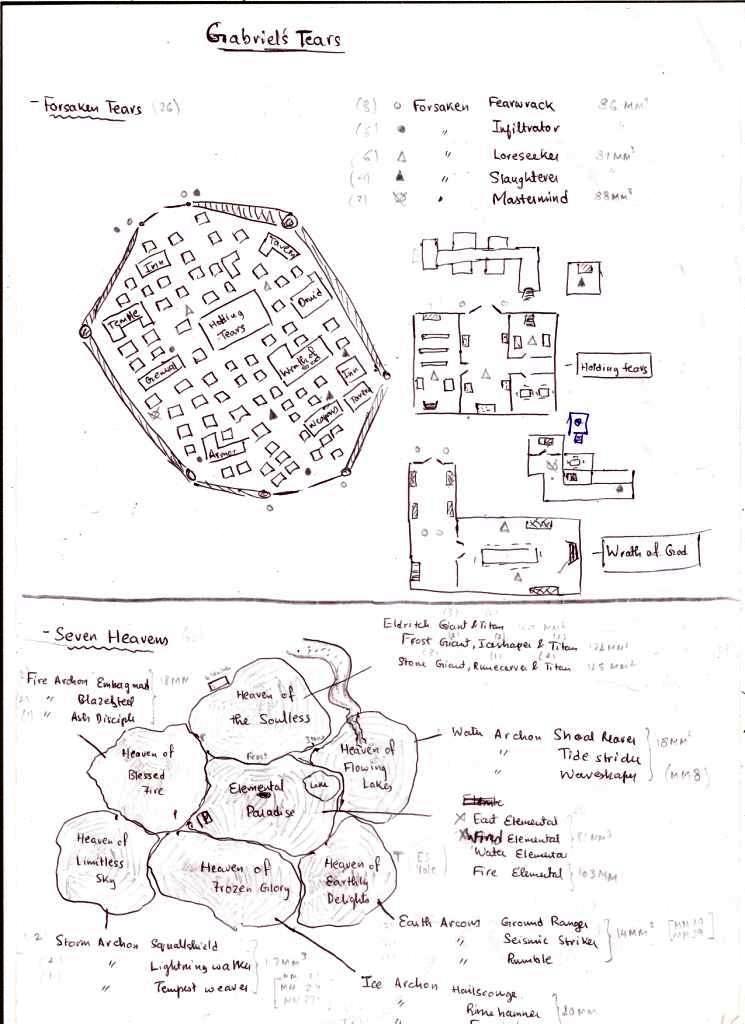 Gabriel's Tears
- Forsaken Tears (26)
(8) Forsaken Fearwrack 86 MM³
(5) " Infiltrator "
(6) " Loreseeker 87MM³
(4) " Slaughterer
(2) " Mastermind 88MM³
Tavern
Inn
Temple
Holding Tears
David
General
Wrath of God
Inn
Tavern
Weapons
Armor
Holding tears
Wrath of God
- Seven Heavens
Eldritch Giant & Titan
Frost Giant, Iceshaper & Titan 122 MM²
Stone Giant, Runecarver & Titan 125 MM²
Fire Archon Emberguard 18MM
" Blazesteel
" Ash Disciple
Heaven of the Soulless
Frost
Stone
Heaven of Blessed Fire
Heaven of Flowing Lakes
Elemental Paradise
Lake
Water Archon Shoal Reaver 18MM²
" Tide strider
" Waveshaper (MM8)
East Elemental
Wind Elemental
Water Elementa
Fire Elemental 103MM
Heaven of Limitless Sky
Heaven of Frozen Glory
Heaven of Earthly Delights
Earth Arcons Ground Ranger 14MM²
" Seismic Striker
" Rumble
2 Storm Archon Squallshield
" Lightning walker 17MM³
" Tempest weaver
Ice Archon Hailscourge
" Rime hammer 20MM